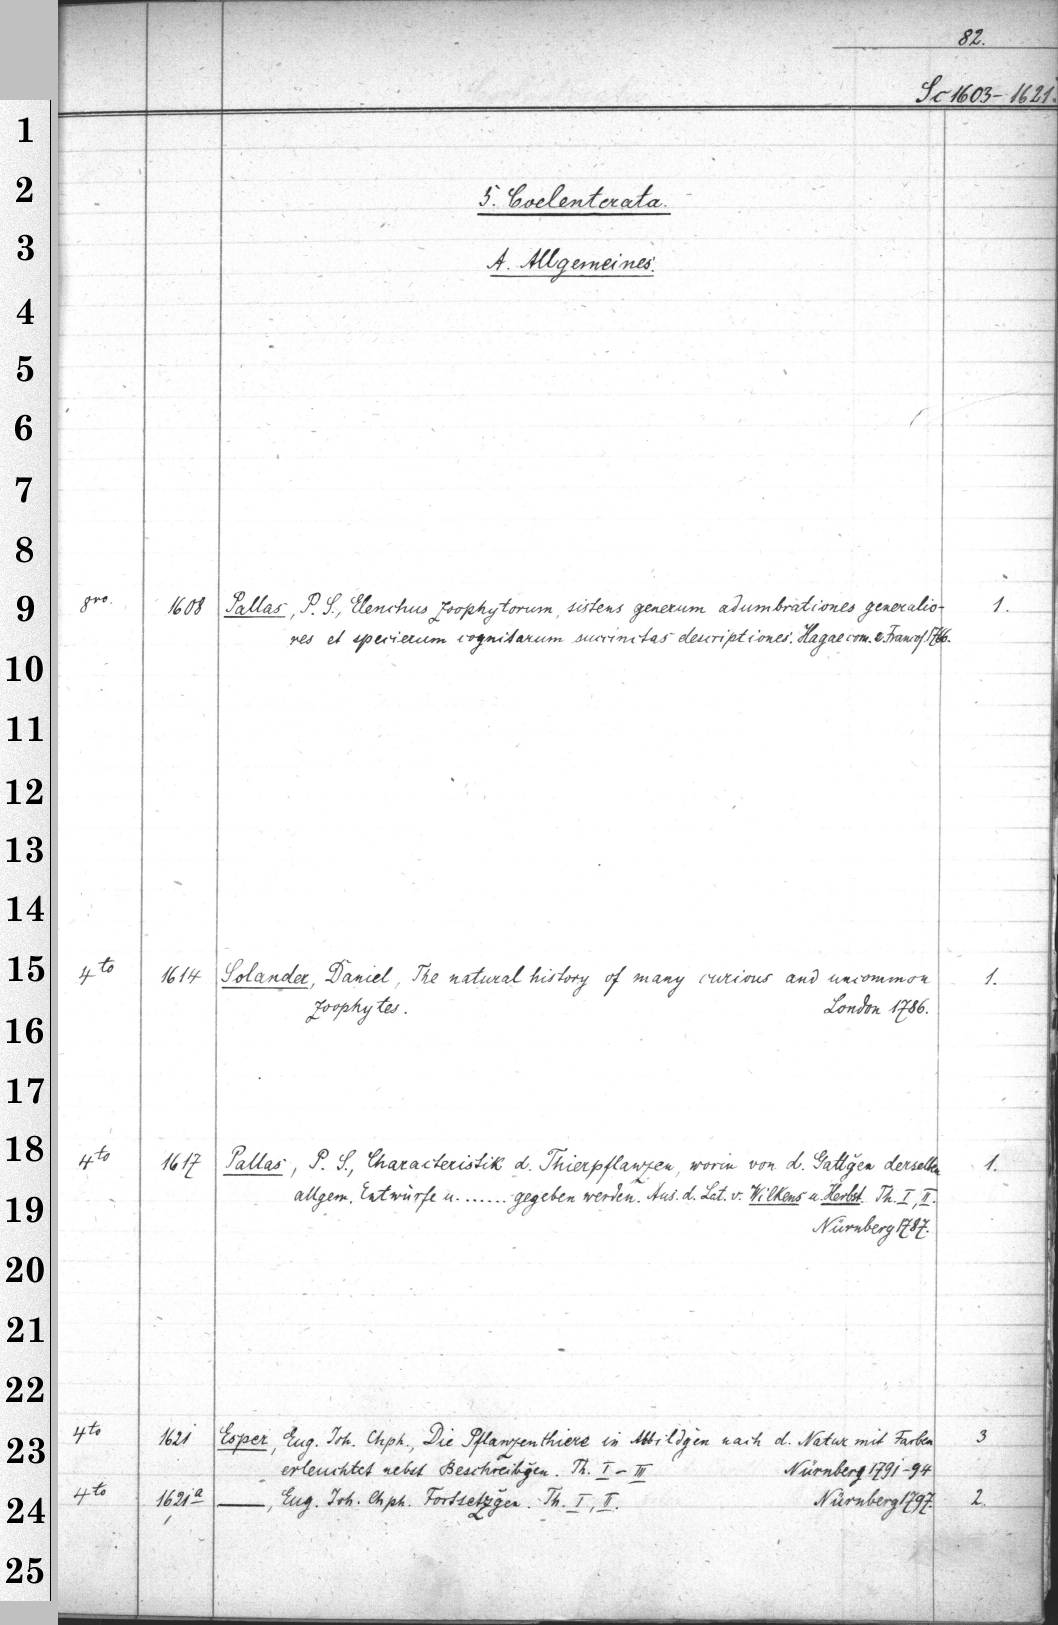 82.
Sc 1603-1621a
1
2
5. Coelenterata.
3
A. Allgemeines.
4
5
6
7
8
9
8vo. 1608 Pallas, P. S., Elenchus zoophytorum, sistens generum adumbrationes generalio- 1.
res et specierum cognitarum succinctas descriptiones. Hagae com. & Francof. 1766.
10
11
12
13
14
15
4to 1614 Solander, Daniel, The natural history of many curious and uncommon 1.
zoophytes. London 1786.
16
17
18
4to 1617 Pallas, P. S., Characteristik d. Thierpflanzen, worin von d. Gattgen derselben 1.
allgem. Entwürfe u. ....... gegeben werden. Aus. d. Lat. v. Wilkens u. Herbst. Th. I, II.
19
Nürnberg 1787.
20
21
22
4to 1621 Esper, Eug. Joh. Chph., Die Pflanzenthiere in Abbildgen nach d. Natur mit Farben 3
23
erleuchtet nebst Beschreibgen. Th. I-III Nürnberg 1791-94
4to 1621a ——, Eug. Joh. Chph. Fortsetzgen. Th. I, II. Nürnberg 1797. 2.
24
25